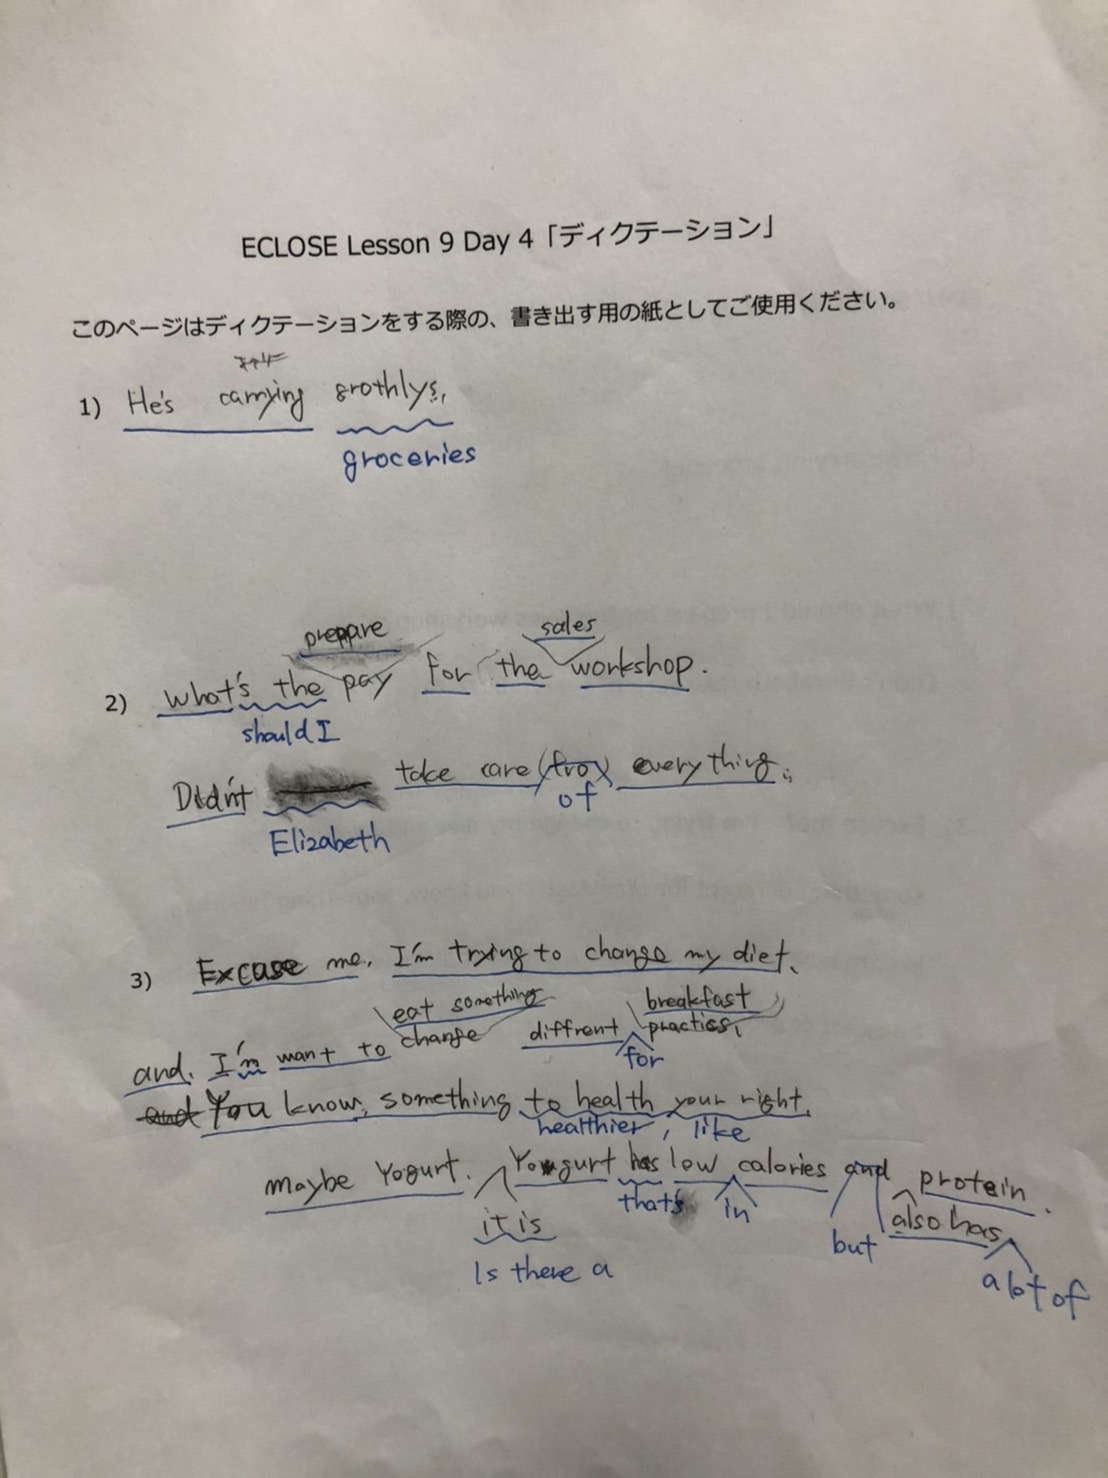 ECLOSE Lesson 9 Day 4「ディクテーション」
このページはディクテーションをする際の、書き出す用の紙としてご使用ください。
1) He's carrying grothlys,
groceries
prepare sales
2) What's the pay for the workshop.
should I
Didn't take care (fro) everything.
of
Elizabeth
3) Excase me. I'm trying to change my diet.
eat something breakfast
and. I'm want to change diffrent practiss,
for
and You know, something to health your right.
healthier, like
maybe Yogurt. Yougurt has low calories and protein.
that's in also has
it is but
Is there a a lot of